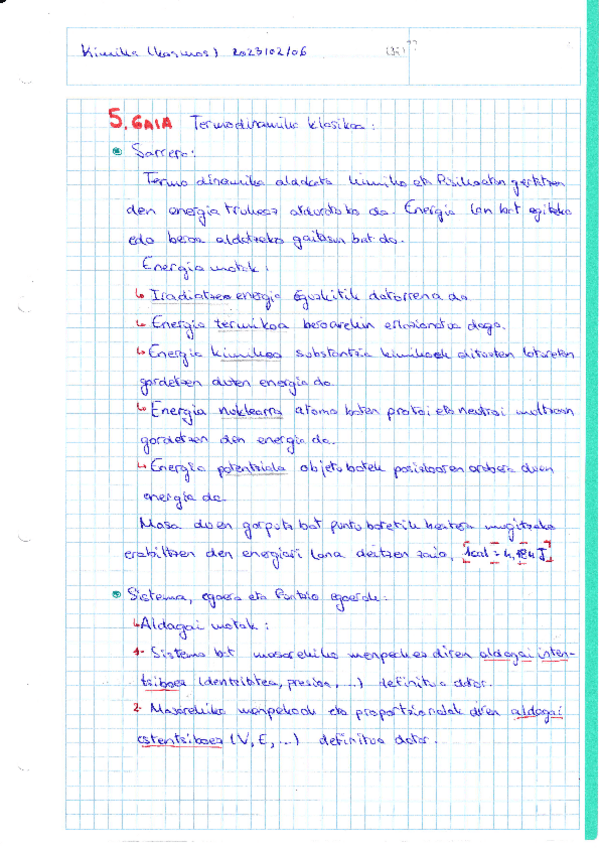 Kimika (kosmos) 2023/02/06
5. GAIA Termodinamika klasikoa:
Sarrera:
Termo dinamika aldaketa kimiko eta fisikoetan gertatzen
den energia trukeaz arduratzen da. Energia lan bat egiteko
edo beroa aldatzeko gaitasun bat da.
Energia motak:
↳ Iradiatzea energia eguzkitik datorrena da
↳ Energia termikoa beroarekin erlazionatua dago.
↳ Energia kimikoa substantzia kimikoek dituzten loturetan
gordetzen duten energia da.
↳ Energia nuklearra atomo baten protoi eta neutroi multzoan
gordetzen den energia da.
↳ Energia potentziala objetu batek posizioaren arabera duen
energia da.
Masa duen gorputz bat puntu batetik bestera mugitzeko
erabiltzen den energiari lana deitzen zaio. 1cal = 4,184 J
Sistema, egoera eta funtzio egoerak:
↳ Aldagai motak:
1- Sistema bat masarekiko menpekoa ez diren aldagai inten-
tsiboez (dentsitatea, presioa, ...) definitua dator.
2- Masarekiko menpekoak eta proportzionalak diren aldagai
estentsiboez (V, E, ...) definitua dator.